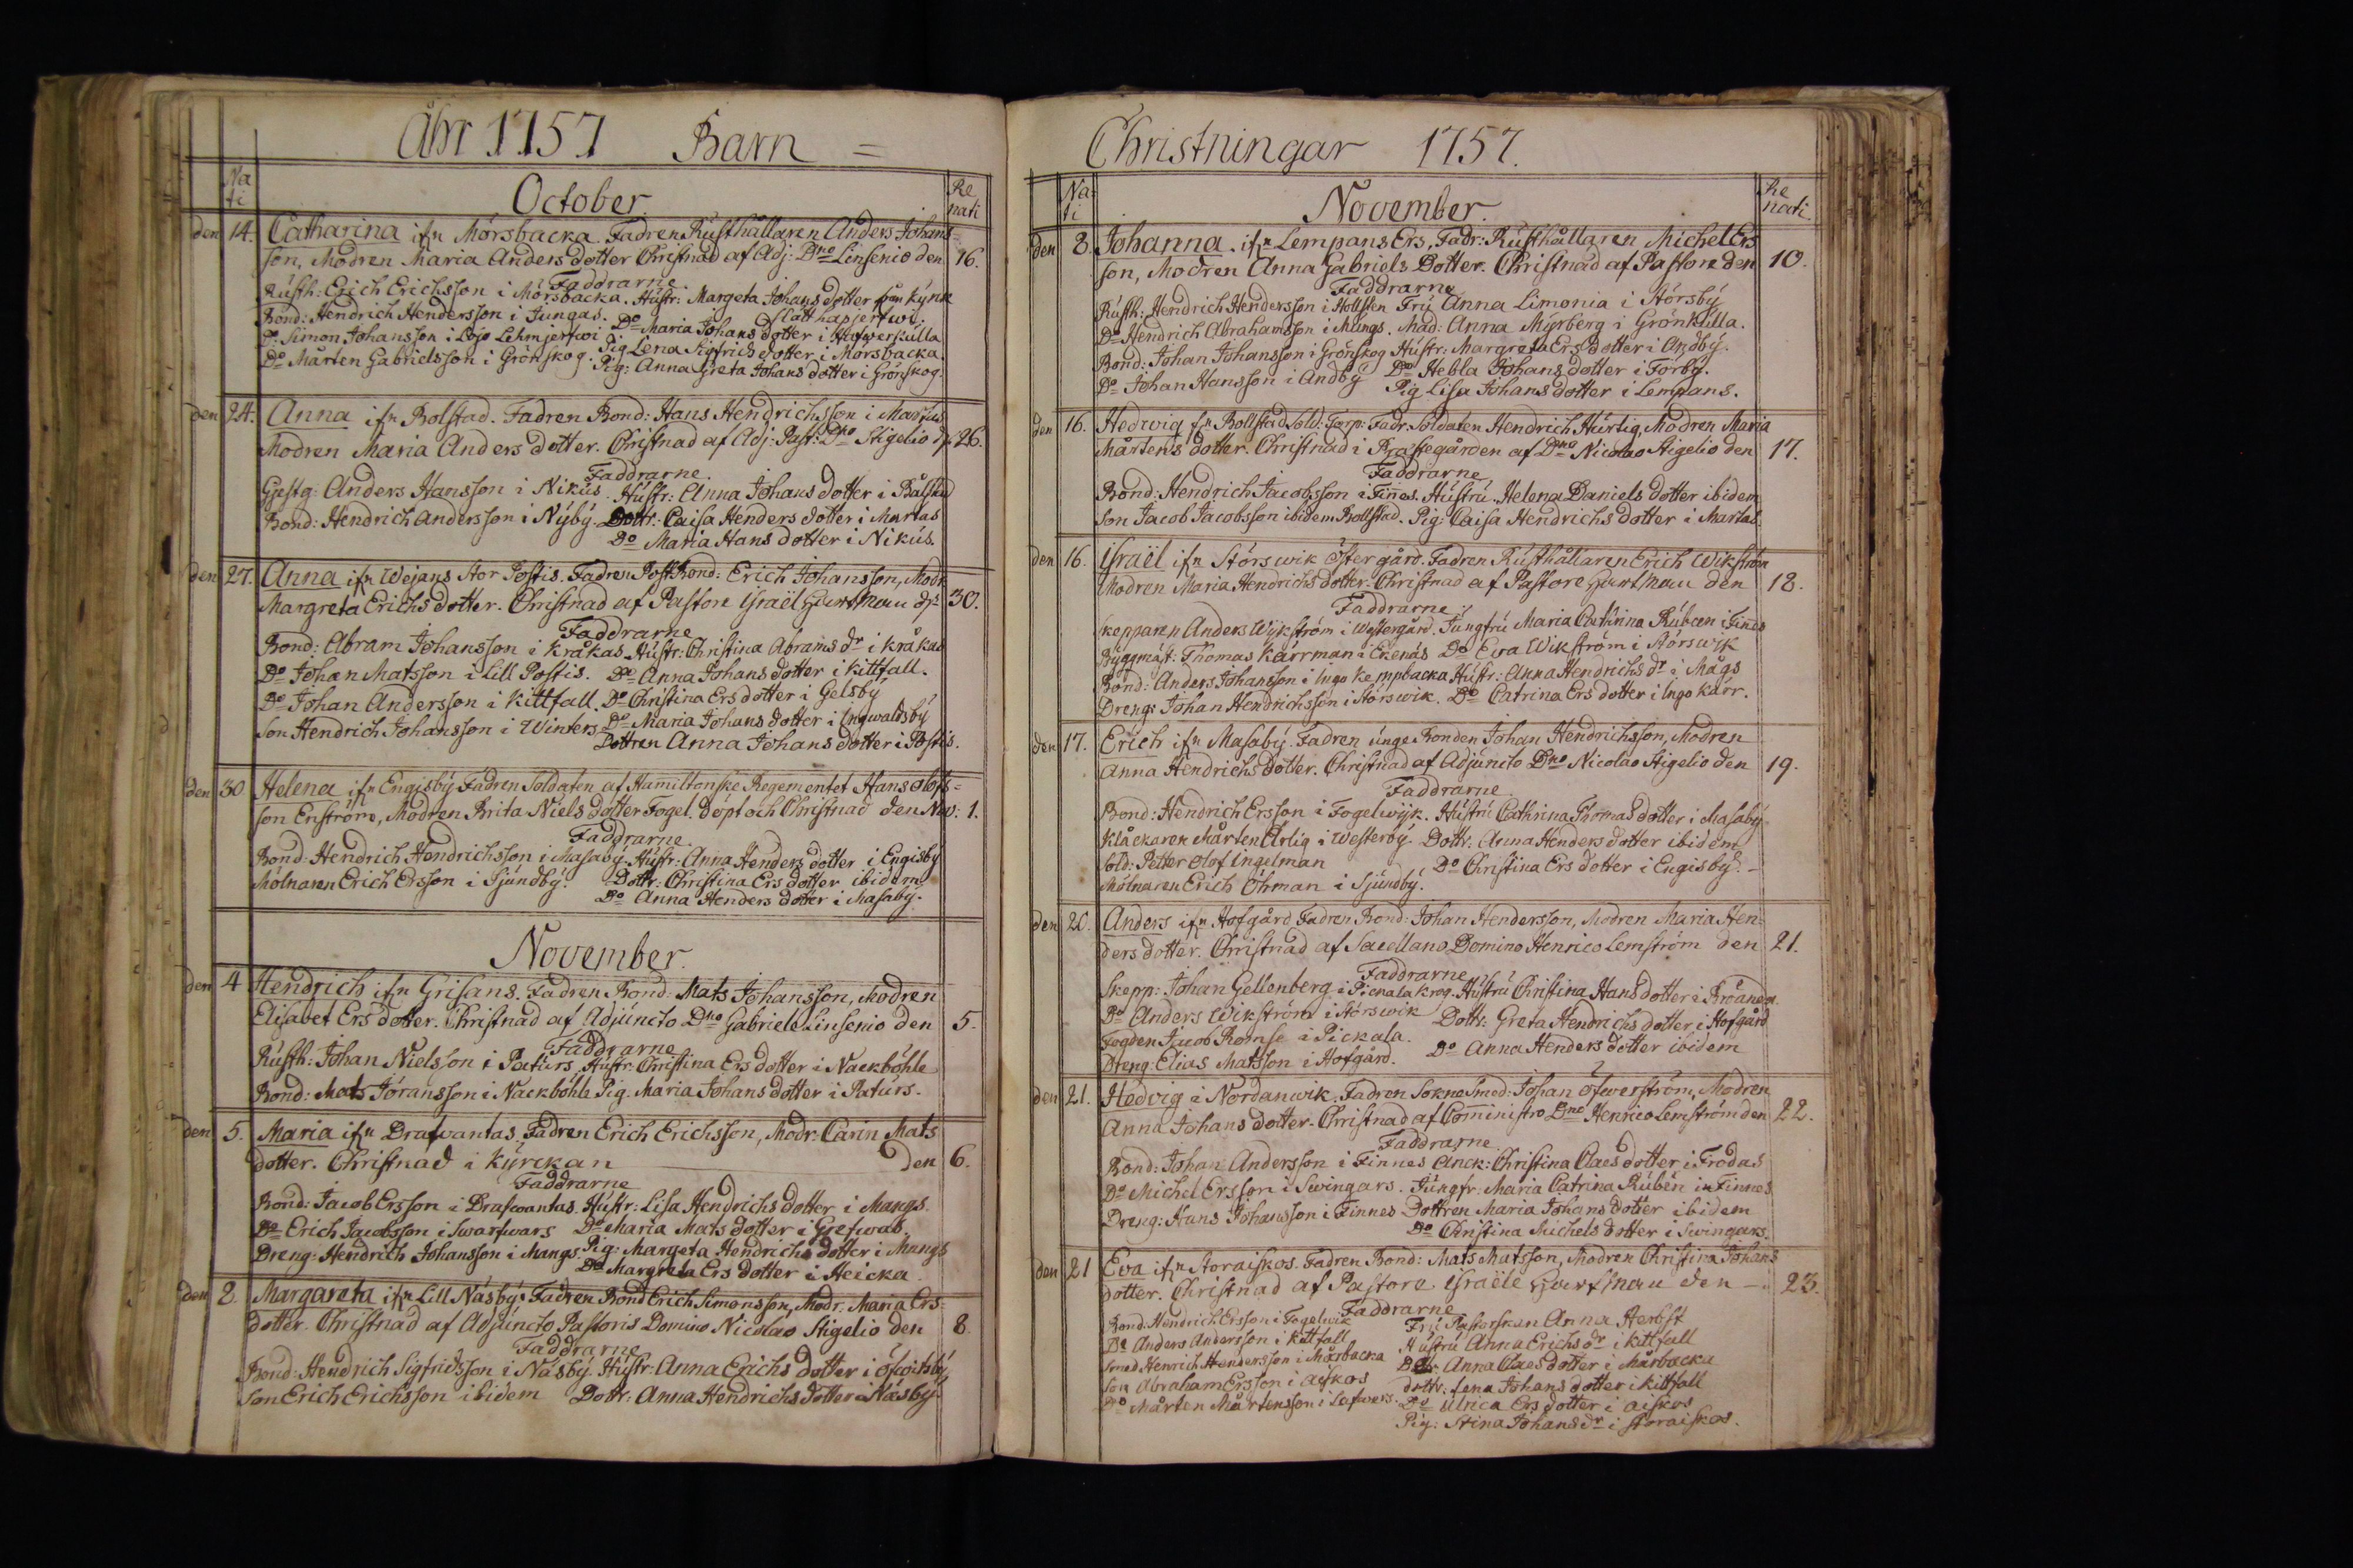 Åhr 1757 Barn =
Na
ti
October
Re
nati
den 14. Catharina ifrn Mörsbacka. Fadren Rusthållaren Anders Johans=
son, Modren Maria Anders dotter Christnad af Adj: Dno Linsenio den 16.
Faddrarne.
Rusth: Erich Erichsson i Mörsbacka. Hustr: Margeta Johans dotter från Kyrk
slätt hapjerfwi.
Bond: Hendrich Hendersson i Jungas. Do Maria Johans dotter i Hufwerskulla
Do Simon Johansson i Lojo Lehmjerfwi Pig Lena Sigfrids dotter i Mörsbacka.
Do Mårten Gabrielsson i Grönskog. Pig: Anna Greta Johans dotter i Grönskog.
den 24. Anna ifrn Bolstad. Fadren Bond: Hans Hendrichsson i Martas
Modren Maria Anders dotter. Christnad af Adj: Past: Dno Stigelio d 26.
Faddrarne.
Gjestg: Anders Hansson i Nikus. Hustr: Anna Johans dotter i Bålstad
Bond: Hendrich Andersson i Nyby. Dottr. Caisa Henders dotter i Martas
Do Maria Hans dotter i Nikus.
den 27. Anna ifrn Wejans Stor Postis. Fadren Post Bond: Erich Johansson, Modr.
Margreta Erichs dotter. Christnad af Pastore Israël Gurthau dn 30.
Faddrarne
Bond: Abram Johansson i Kråkas. Hustr: Christina Abrams dr i Kråkas
Do Johan Matsson i Lill Postis. Do Anna Johans dotter i Kittfall.
Do Johan Andersson i Kittfall. Do Christina Ers dotter i Gelsby
Son Hendrich Johansson i Winters Do Maria Johans dotter i Ingwaldsby
Dottren Anna Johans dotter i Postis.
den 30 Helena ifrn Engisby Fadren Soldaten af Hamiltonske Regementet Hans Olofs=
son Enström, Modren Brita Niels dotter Fogel. Döpt och Christnad den Nov: 1.
Faddrarne
Bond: Hendrich Hendrichsson i Masaby. Hustr: Anna Henders dotter i Engisby
Mölnaren Erich Ersson i Sjundby. Dottr: Christina Ers dotter ibidem
Do Anna Henders dotter i Masaby.
November.
den 4 Hendrich ifrn Grisans. Fadren Bond: Mats Johansson, Modren
Elisabet Ers dotter. Christnad af Adjuncto Dno Gabriele Linsenio den 5.
Faddrarne
Rusth: Johan Nielsson i Paturs, Hustr: Christina Ers dotter i Nackböhle
Bond: Mats Jöransson i Nackböhle Pig. Maria Johans dotter i Paturs.
den 5. Maria ifrn Drafvantas. Fadren Erich Erichsson, Modr. Carin Mats
dotter. Christnad i Kyrckan den 6.
Faddrarne
Bond: Jacob Ersson i Drafwantas. Hustr: Lisa Hendrichs dotter i Mangs.
Do Erich Jacobsson i Swartwars Do Maria Mats dotter i Grefwas.
Dreng: Hendrich Johansson i Mangs. Pig: Margeta Hendrichs dotter i Mangs
Do Margreta Ers dotter i Heicka.
den 8. Margareta ifrn Lill Näsby. Fadren Bond Erich Simonsson, Modr. Maria Ers=
dotter. Christnad af Adjuncto Pastoris Domino Nicolao Stigelio den 8.
Faddrarne
Bond: Hendrich Sigfridsson i Näsby. Hustr: Anna Erichs dotter i
Son Erich Erichsson ibidem Dottr: Anna Hendrichs dotter i Näsby.
Christningar 1757.
Na
ti
November.
Re
nati.
den 8. Johanna. ifrn Lempans Ers, Fadr: Rusthållaren Michel Ers
son, Modren Anna Gabriels Dotter. Christnad af Pastore den 10.
Faddrarne
Rusth: Hendrich Hendersson i Hollsten Fru Anna Limonia i Störsby
Do Hendrich Abrahamsson i Mangs. Mad: Anna Myrberg i Grönkulla.
Bond: Johan Johansson i Grönskog Hustr: Margreta Ers dotter i Andby.
Do Johan Hansson i Andby Do Hebla Johans dotter i Torby.
Pig Lisa Johans dotter i Lempans.
den 16. Hedwig frn Bollstad Sold: Torp: Fadr. Soldaten Hendrich Hurtig, Modren Maria
Mårtens dotter. Christnad i Prästegården af Dno Nicolao Stigelio den 17.
Faddrarne
Bond: Hendrich Jacobsson i Finnes. Hustru. Helena Daniels dotter ibidem
Son Jacob Jacobsson ibidem Bollstad. Pig: Caisa Hendrichs dotter i Martas.
den 16. Israël ifrn Störswik östergård. Fadren Rusthållaren Erich Wikström
Modren Maria Hendrichs dotter. Christnad af Pastore Gurthau den 18.
Faddrarne
Skepparen Anders Wikström i Westergård. Jungfru Maria Cathrina Rubeen i Finnes
Byggmäst: Thomas Kärrman i Ekenäs Do Eva Wikström i Störswik
Bond: Anders Johansson i Ingo Kempbacka Hustr: Anna Hendrichs dr i Mågs
Dreng: Johan Hendrichsson i Störswik. Do Catrina Ers dotter i Ingo kärr.
den 17. Erich ifrn Masaby. Fadren unge Bonden Johan Hendrichsson, Modren
Anna Hendrichs dotter. Christnad af Adjuncto Dno Nicolao Stigelio den 19.
Faddrarne.
Bond: Hendrich Ersson i Fogelwijk. Hustru Cathrina Thomas dotter i Masaby
Klåckaren Mårten Ärlig i Westerby. Dottr. Anna Henders dotter ibidem
Sold: Petter Olof Ingelman Do Christina Ers dotter i Engisby.
Mölnaren Erich Öhman i Sjundby.
den 20. Anders ifrn Hofgård Fadren Bond: Johan Hendersson, Modren Maria Hen=
ders dotter. Christnad af Sacellano Domino Henrico Lemström den 21.
Faddrarne
Skepp: Johan Gellenberg i Pickala krog. Hustru Christina Hans dotter i
Do Anders Wikström i Störswik Dottr: Greta Hendrichs dotter i Hofgård
Fogden Jacob i Pickala. Do Anna Henders dotter ibidem
Dreng: Elias Matsson i Hofgård.
den 21. Hedvig i Nordanwik. Fadren SokneSmed: Johan Öfwerström, Modren
Anna Johans dotter. Christnad af Cominestro Dno Henrico Lemström den 22.
Faddrarne
Bond: Johan Andersson i Finnes Änck: Christina Claes dotter i Frodas
Do Michel Ersson i Swingars. Jungfr: Maria Catrina Rubén i Finnes
Dreng: Hans Johansson i Finnes Dottren Maria Johans dotter ibidem
Do Christina Michels dotter i Swingars.
den 21 Eva ifrn Storaiskos. Fadren Bond: Mats Matsson, Modren Christina Johans
dotter. Christnad af Pastore Israële Gurthau den — 23.
Faddrarne
Bond: Hendrich Ersson i Fogelwik Fru Pastorskan Anna Herbst
Do Anders Andersson i Kittfall Hustru Anna Erichs dr i Kittfall
Smed Henrich Hendersson i Mårbacka Do Anna Claes dotter i Mårbacka
Son Abraham Ersson i Aiskos dottr. Lena Johans dotter i Kittfall
Do Mårten Mårtensson i Lafwers. Do Ulrica Ers dotter i Aiskos
Pig: Stina Johans dr i Storaiskos.